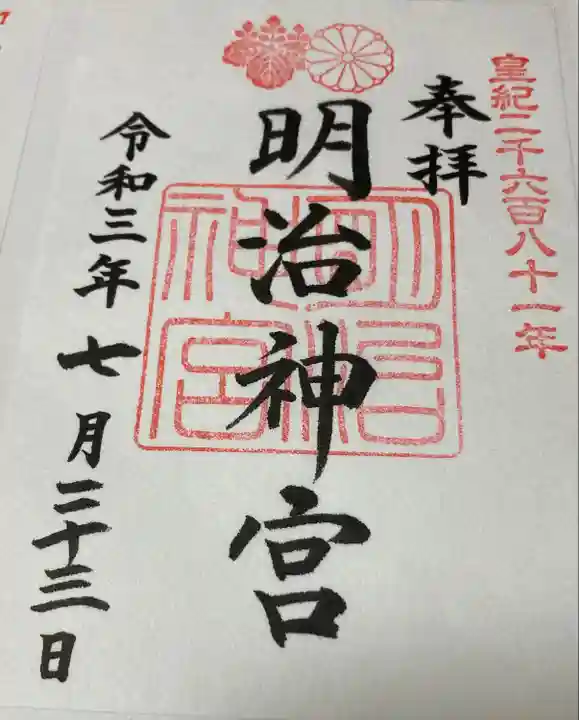 皇紀二千六百八十一年
奉拝
明治神宮
明治
神宮
令和三年七月二十三日